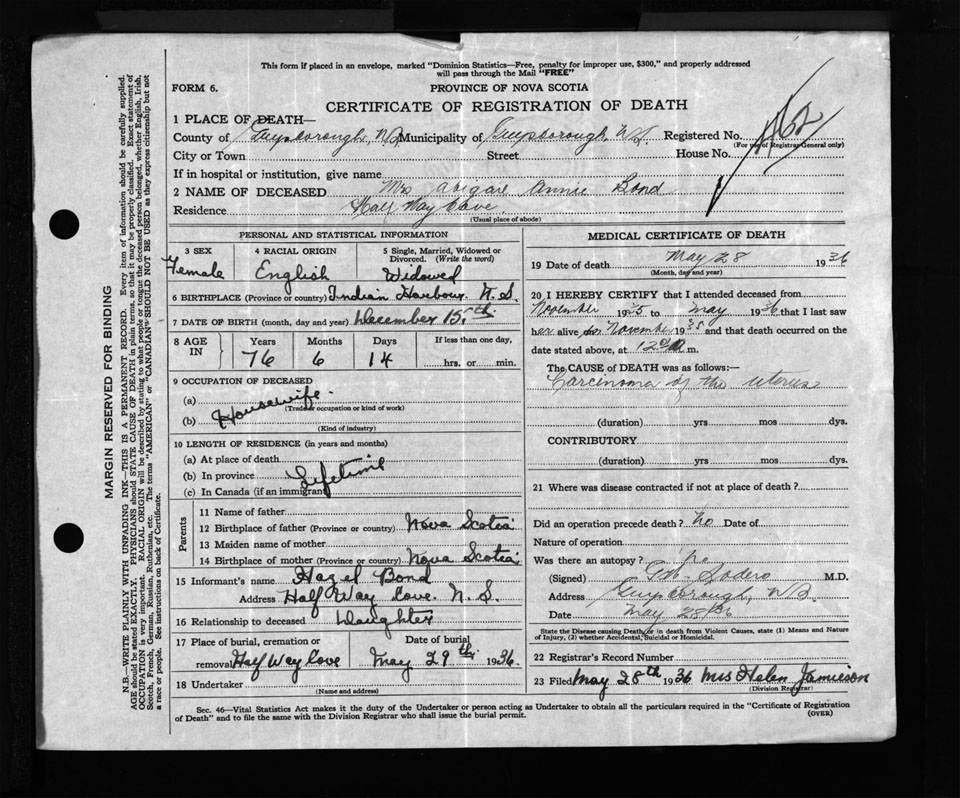 This form if placed in an envelope, marked "Dominion Statistics—Free, penalty for improper use, $300," and properly addressed
will pass through the Mail "FREE"
FORM 6.
PROVINCE OF NOVA SCOTIA
CERTIFICATE OF REGISTRATION OF DEATH
1 PLACE OF DEATH—
County of Guysborough, N.S. Municipality of Guysborough, N.S. Registered No. 462
(For use of Registrar General only)
City or Town Street House No.
If in hospital or institution, give name
2 NAME OF DECEASED Mrs Abigare Annie Bond
Residence Half Way Cove.
(Usual place of abode)
PERSONAL AND STATISTICAL INFORMATION
3 SEX 4 RACIAL ORIGIN 5 Single, Married, Widowed or
Divorced. (Write the word)
Female English Widowed
6 BIRTHPLACE (Province or country) Indian Harbour N.S.
7 DATE OF BIRTH (month, day and year) December 15th
8 AGE IN Years Months Days If less than one day,
76 6 14 hrs. or min.
9 OCCUPATION OF DECEASED
(a) Housewife.
(Trade or occupation or kind of work)
(b)
(Kind of industry)
10 LENGTH OF RESIDENCE (in years and months)
(a) At place of death
(b) In province Lifetime
(c) In Canada (if an immigrant
Parents
11 Name of father
12 Birthplace of father (Province or country) Nova Scotia
13 Maiden name of mother
14 Birthplace of mother (Province or country) Nova Scotia
15 Informant's name Hazel Bond
Address Half Way Cove. N.S.
16 Relationship to deceased Daughter
17 Place of burial, cremation or Date of burial
removal Half Way Cove May 29th 1936.
18 Undertaker
(Name and address)
MEDICAL CERTIFICATE OF DEATH
19 Date of death May 28 1936
(Month, day and year)
20 I HEREBY CERTIFY that I attended deceased from
November 1935 to May 1936 that I last saw
her alive on November 1935 and that death occurred on
date stated above, at 12 m.
The CAUSE OF DEATH was as follows:—
Carcinoma of the uterus
(duration) yrs mos dys.
CONTRIBUTORY
(duration) yrs. mos dys.
21 Where was disease contracted if not at place of death?
Did an operation precede death? No Date of
Nature of operation
Was there an autopsy? no
(Signed) Sodero M.D.
Address Guysborough, N.S.
Date May 28/36
State the Disease causing Death, or in death from Violent Causes, state (1) Means and Nature
of Injury, (2) whether Accidental, Suicidal or Homicidal.
22 Registrar's Record Number
23 Filed May 28th 1936 Mrs Helen Jamieson
(Division Registrar)
Sec. 46—Vital Statistics Act makes it the duty of the Undertaker or person acting as Undertaker to obtain all the particulars required in the "Certificate of Registration
of Death" and to file the same with the Division Registrar who shall issue the burial permit. (OVER)
MARGIN RESERVED FOR BINDING
N.B.—WRITE PLAINLY WITH UNFADING INK—THIS IS A PERMANENT RECORD. Every item of information should be carefully supplied.
AGE should be stated EXACTLY. PHYSICIANS should STATE CAUSE OF DEATH in plain terms, so that it may be properly classified. Exact statement of
OCCUPATION is very important. RACIAL ORIGIN will be described by stating to what people or tongue the deceased person belonged, whether English, Irish,
Scotch, French, German, Russian, Ruthenian, etc. The terms "AMERICAN" or "CANADIAN" SHOULD NOT BE USED as they express citizenship but not
a race or people. See instructions on back of Certificate.